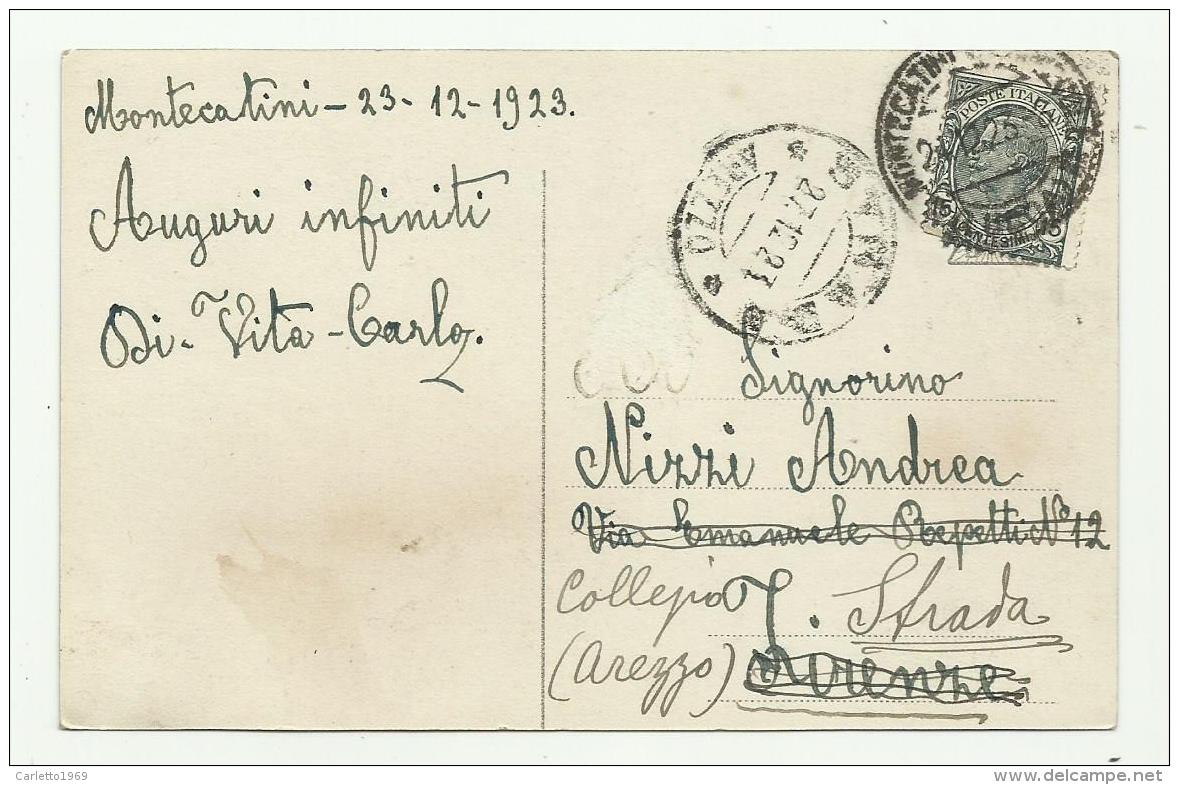 Montecatini - 23 - 12 - 1923.
Auguri infiniti
Di - Vita - Carlo.
MONTECATINI
POSTE ITALIANE
15 CENTESIMI 15
AREZZO
27.12.23
Signorino
Nizzi Andrea
Via Emanuele Repetti N° 12
Collegio
Strada
(Arezzo) Firenze
Carletto1969
www.delcampe.net